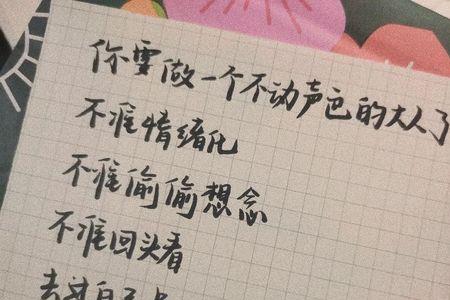 你要做一个不动声色的大人了
不准情绪化
不准偷偷想念
不准回头看
去过自己